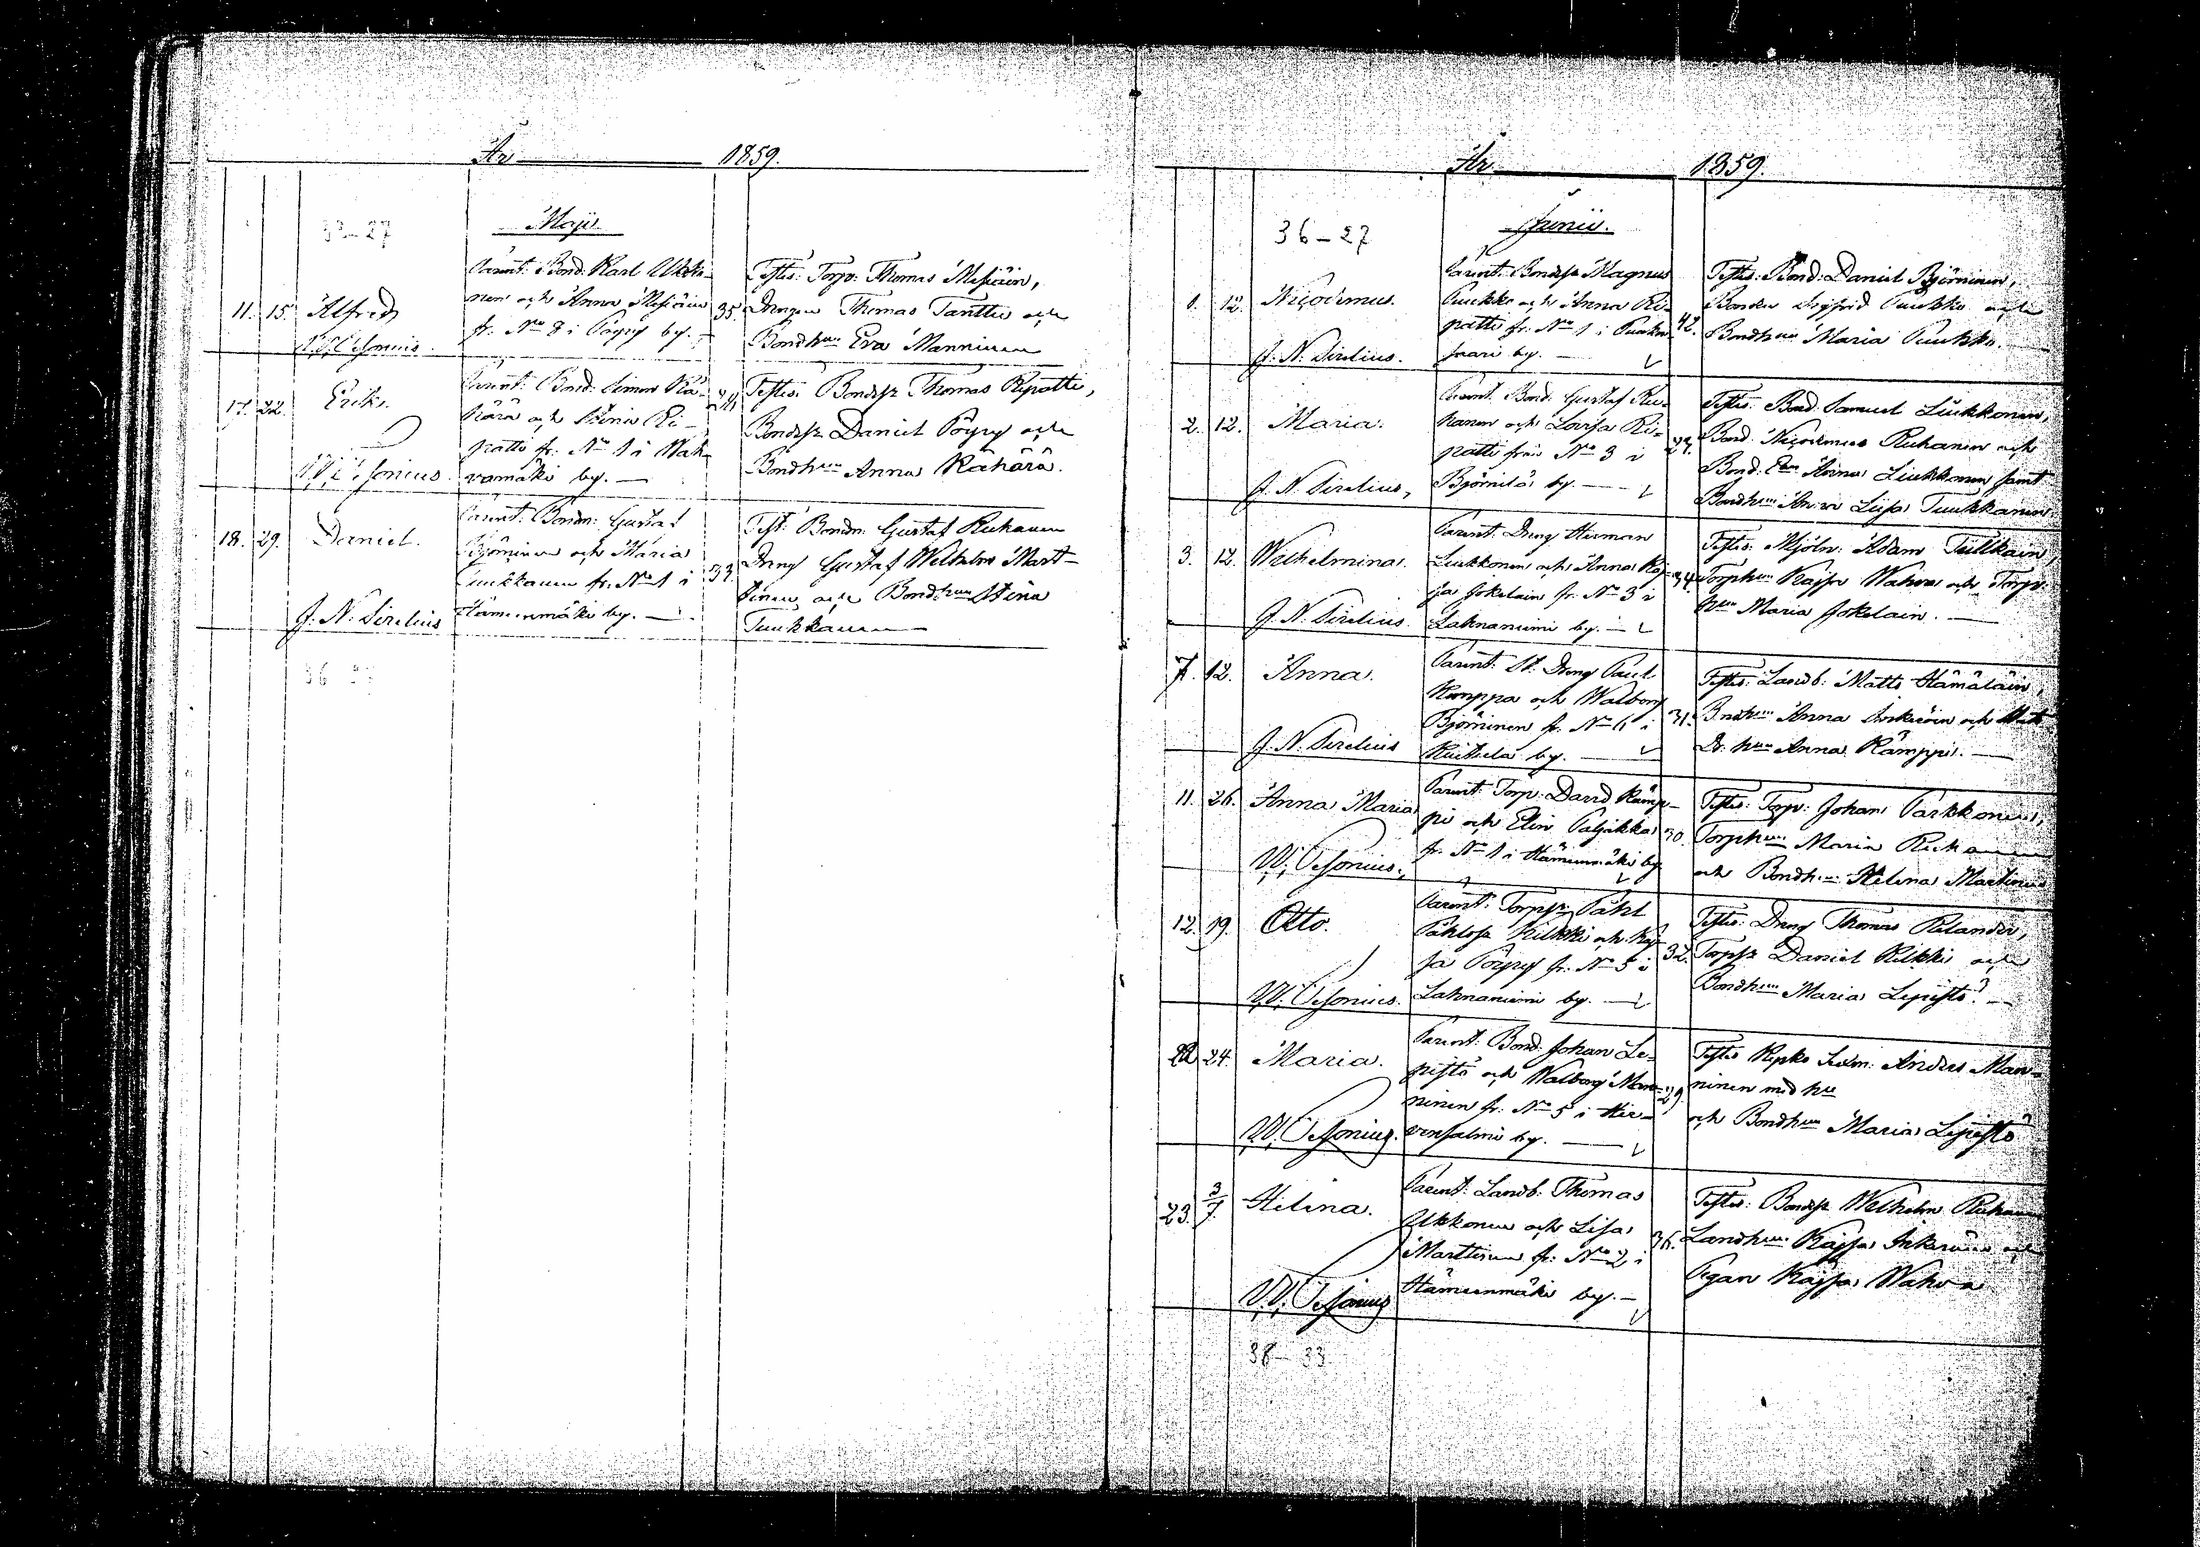 År 1859.
Maji.
11. 15. Alfred
Parent: Bond: Karl Ukko-
nen och Anna Mesiäin
fr. No 8 i Pöyry by. 35.
Testes: Torp: Thomas Mesiäin,
Drengen Thomas Tanttu och
Bondhun Eva Manninen
17. 22. Erik.
Parent: Bond: Simon Kä-
härä och Stina Ri-
patti fr. No 1 i Wah-
vamäki by. —
Testes: Bondess Thomas Ripatti,
Bondess Daniel Pöyry och
Bondhun Anna Kähärä.
18. 29. Daniel.
J. N. Sirelius
Parent: Bondn: Gustaf
Björninen och Maria
Tuukkanen fr. No 1 i 33.
Hämeenmäki by. —
Test: Bondn: Gustaf Ruhanen
Dreng Gustaf Wilhelm Mart-
tinen, och Bondhun Stina
Tuukkanen
År 1859.
36-27
Junii.
1. 12. Nicodemus.
J. N. Sirelius.
Parent: Bondess Magnus
Puukko och Anna Ri-
patti fr. No 1 i 42.
saari by. —
Testes: Bond: Daniel Björninen,
Bonden Sigfrid Puukko och
Bondhun Maria Puukko.
2. 12. Maria.
J. N. Sirelius,
Parent: Bond: Gustaf Ru-
hanen och Lovisa Ri-
patti från No 3 i 27.
Björnilä by. —
Testes: Bond: Samuel Liukkonen,
Bond: Nicodemus Ruhanen och
Bond: Anna Liukkonen samt
Bondhun Anna Lisa Tuukkanen.
3. 12. Wilhelmina.
J. N. Sirelius.
Parent: Dreng Herman
Liukkonen och Anna Kaj-
sa Jokelain fr. No 3 i 34.
Lahnaniemi by. —
Testes: Mjöln: Adam Tullkain,
Torphun Kajsa Wahva och Torp-
hun Maria Jokelain. —
7. 12. Anna.
J. N. Sirelius
Parent: St: Dreng Paul
Kamppa och Walborg
Björninen fr. No 6 i 31.
by. —
Testes: Landb: Matts Hämäläin,
Bondhun Anna Inkeröin och
Dr. hun Anna Kämppi. —
11. 26. Anna Maria
Parent: Torp: David Kämp-
pi och Elin Paljakka 30.
fr. No 1 i Hämeenmäki by
Testes: Torp: Johan Parkkonen,
Torphun Maria Ruhanen
och Bondhun Helena Martinen
12. 19. Otto.
Parent: Torpess Påhl
Påhloss Kilkki och Kaj-
sa Pöyry fr. No 5 i 32.
Lahnaniemi by. —
Testes: Dreng Thomas Relander,
Torpess Daniel Kilkki och
Bondhun Maria Lepistö. —
22 24. Maria.
Parent: Bond: Johan Le-
pistö och Walborg Man-
ninen fr. No 5 i Hir- 29.
vensalmi by. —
Testes Anders Man-
ninen med hu
och Bondhun Maria Lepistö
23. 3/7. Helena.
Parent: Landb: Thomas
Ukkonen och Lisa
Marttinen fr. No 2 i 36.
Hämeenmäki by. —
Testes: Bondess Wilhelm Ruhanen
Landhun Kajsa Inkeröin och
Pigan Kajsa Wahva
38-33